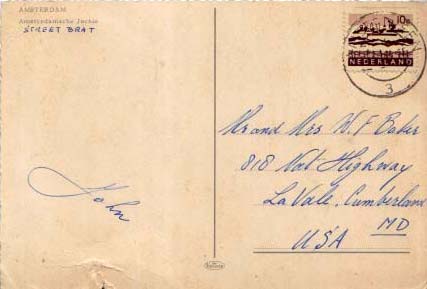 AMSTERDAM
Amsterdamsche Jochie
STREET BRAT
10c
NEDERLAND
3
Mr and Mrs W. F Baker
818 Nat Highway
LaVale, Cumberland
MD
USA
John